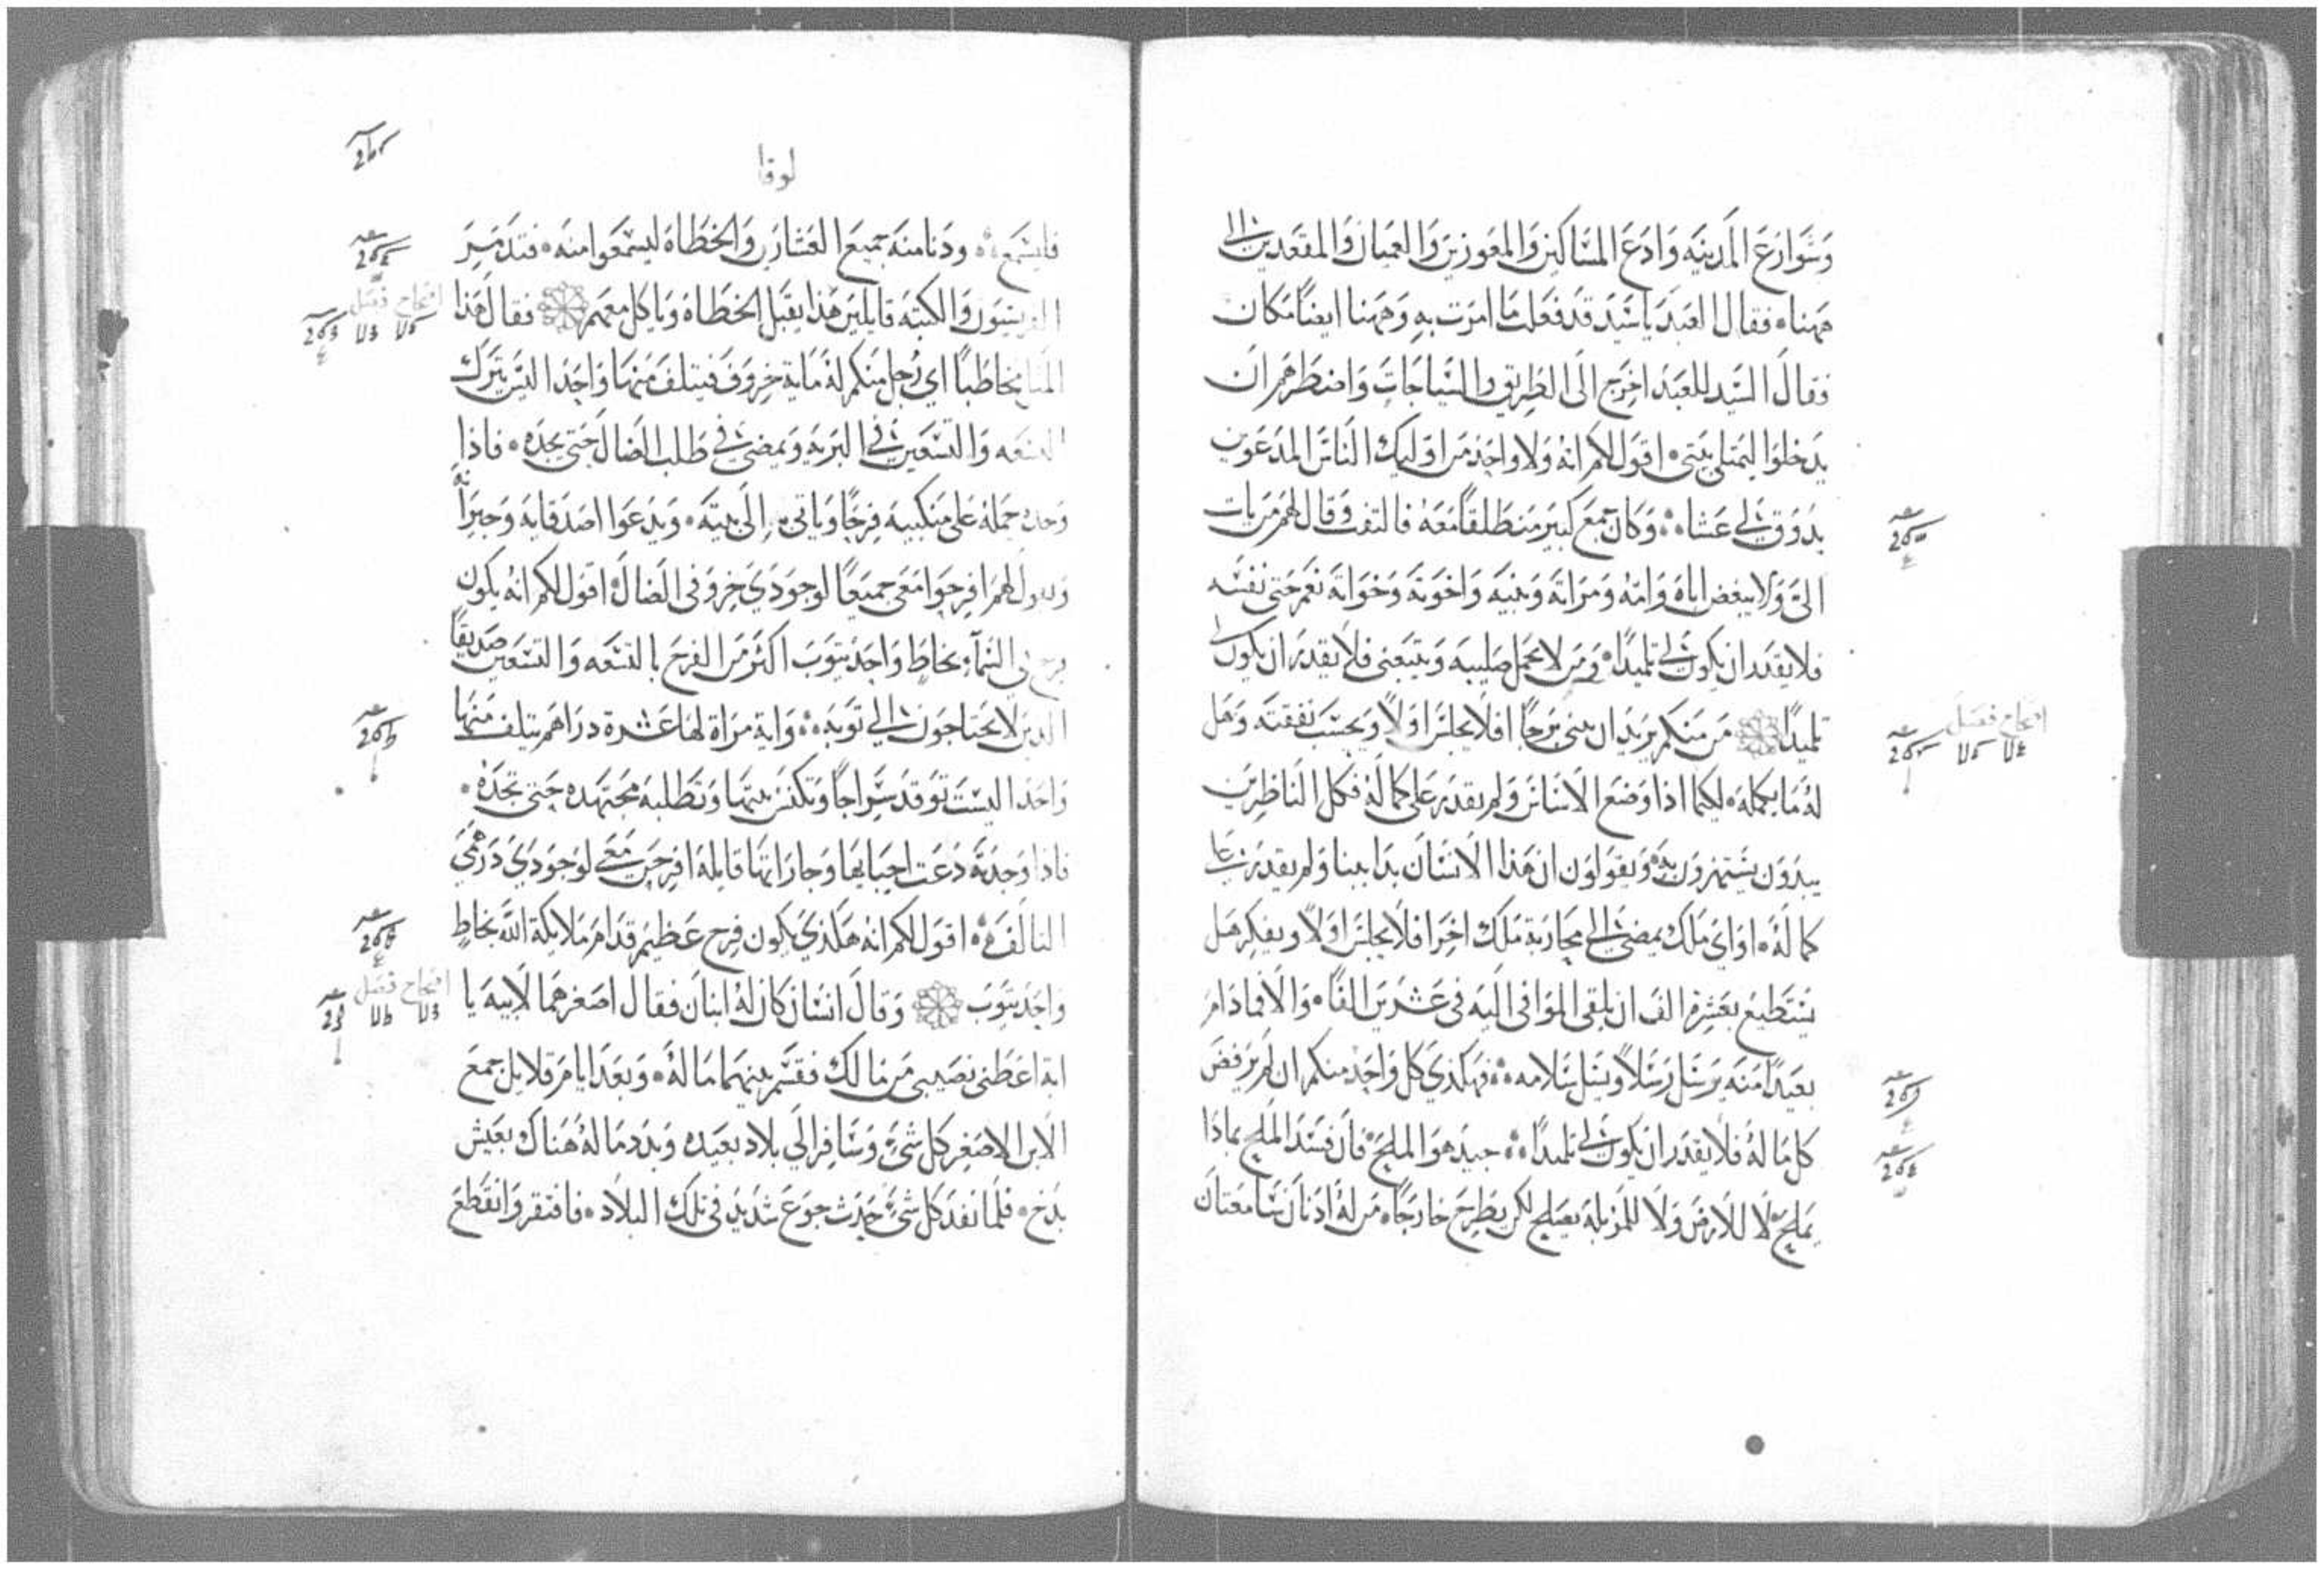 وشوارع المدينه وادع المساكين والمعوزين والعميان والمقعدين الى
ههنا فقال العبد يا سيد قد فعلت ما امرت به وههنا ايضا مكان
فقال السيد للعبد اخرج الى الطريق والسياجات واضطرهم ان
يدخلوا ليمتلى بيتى اقول لكم انه ولا واحد من اوليك الناس المدعوين
يذوق لي عشاء وكان جمع كبير منطلقا معه فالتفت وقال لهم من يات
الى ولا يبغض اباه وامه ومراته وبنيه واخوته وخواته نعم حتى نفسه
فلا يقدر ان يكون لي تلميذا ومن لا يحمل صليبه ويتبعنى فلا يقدر ان يكون لي
تلميذا من منكم يريد ان يبنى برجا افلا يجلس اولا ويحسب نفقته وهل
له ما يكمله لكيما اذا وضع الاساس ولم يقدر على كماله فكل الناظرين
يبدون يستهزون به ويقولون ان هذا الانسان بدا ببنا ولم يقدر على
كماله او اي ملك يمضي الى محاربة ملك اخر افلا يجلس اولا ويفكر هل
يستطيع بعشرة الف ان يلقى الموافى اليه فى عشرين الفا والا فما دام
بعيدا منه يرسل رسلا ويسل سلامه فهكذي كل واحد منكم ان لم يرفض
كل ماله فلا يقدر ان يكون لي تلميذا جيد هو الملح فان فسد الملح بماذا
يملح لا للارض ولا للمزبلة يصلح لكن يطرح خارجا من له اذنان سامعتان
لوقا
فليسمع ودنا منه جميع العشارين والخطاه ليسمعوا منه فتذمر
الفريسيون والكتبه قايلين هذا يقبل الخطاه وياكل معهم فقال هذا
المثل مخاطبا اي رجل منكم له ماية خروف فيتلف منها واحدا اليس يترك
التسعه والتسعين في البريه ويمضي في طلب الضال حتى يجده فاذا
وجده حمله على منكبيه فرحا وياتي به الى بيته ويدعوا اصدقايه وجيرانه
ويقول لهم افرحوا معى جميعا لوجودي خروفى الضال اقول لكم انه يكون
فرح في السماء بخاط واحد يتوب اكثر من الفرح بالتسعه والتسعين صديقا
الذين لا يحتاجون الي توبه واية مراة لها عشرة دراهم يتلف منها
واحدا اليست توقد سراجا وتكنس بيتها وتطلبه مجتهده حتى تجده
فاذا وجدته دعت احبايها وجاراتها قايلة افرحن معى لوجودي درهمي
التالف اقول لكم انه هكذي يكون فرح عظيم قدام ملايكة الله بخاط
واحد يتوب وقال انسان كان له ابنان فقال اصغرهما لابيه يا
ابة اعطنى نصيبى من مالك فقسم بينهما ماله وبعد ايام قلايل جمع
الابن الاصغر كل شيء وسافر الي بلاد بعيده وبدد ماله هناك بعيش
بذخ فلما نفد كل شيء حدث جوع شديد فى تلك البلاد فافتقر وانقطع